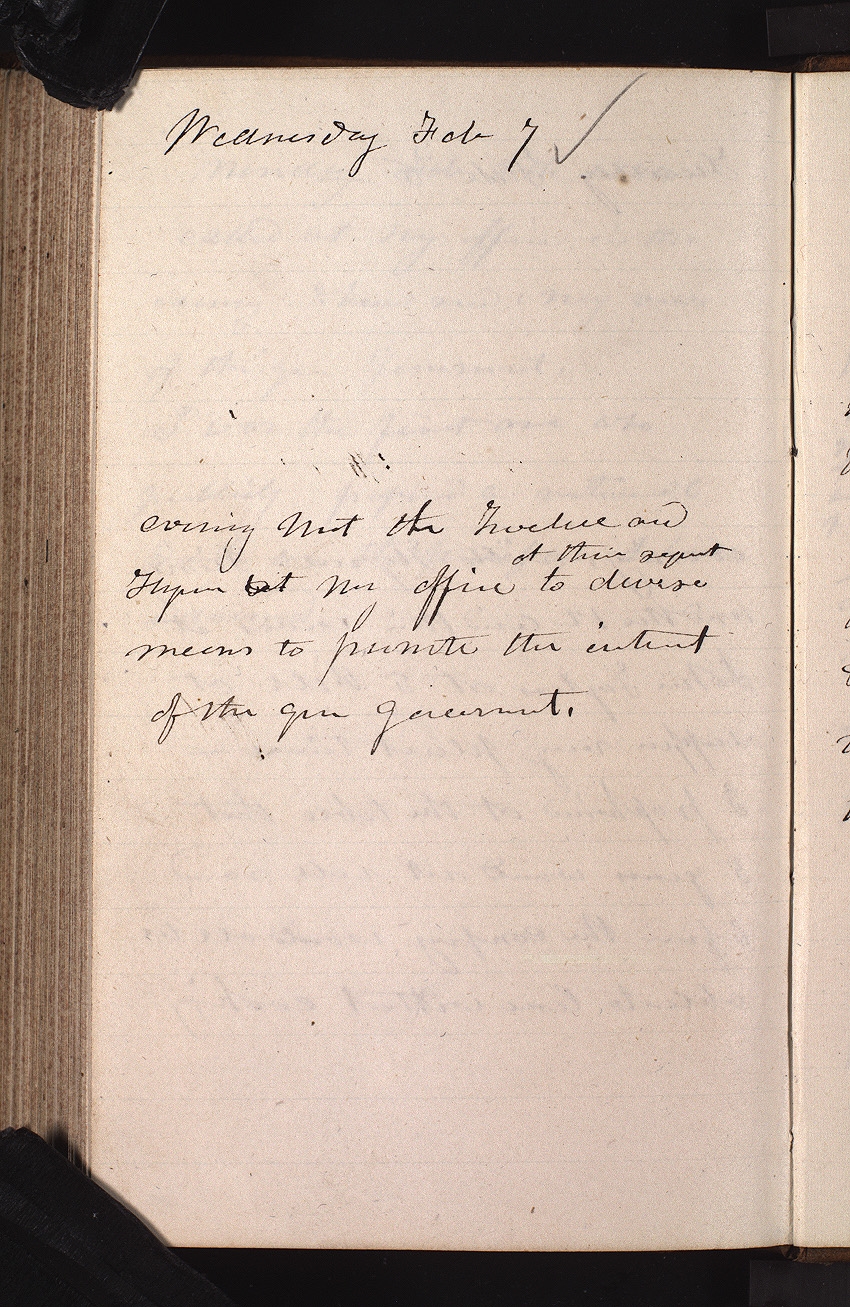 Wednesday Feb 7
evening Met the Twelve and
at their request
Hyrum at my office to devise
means to promote the interest
of the gen government.